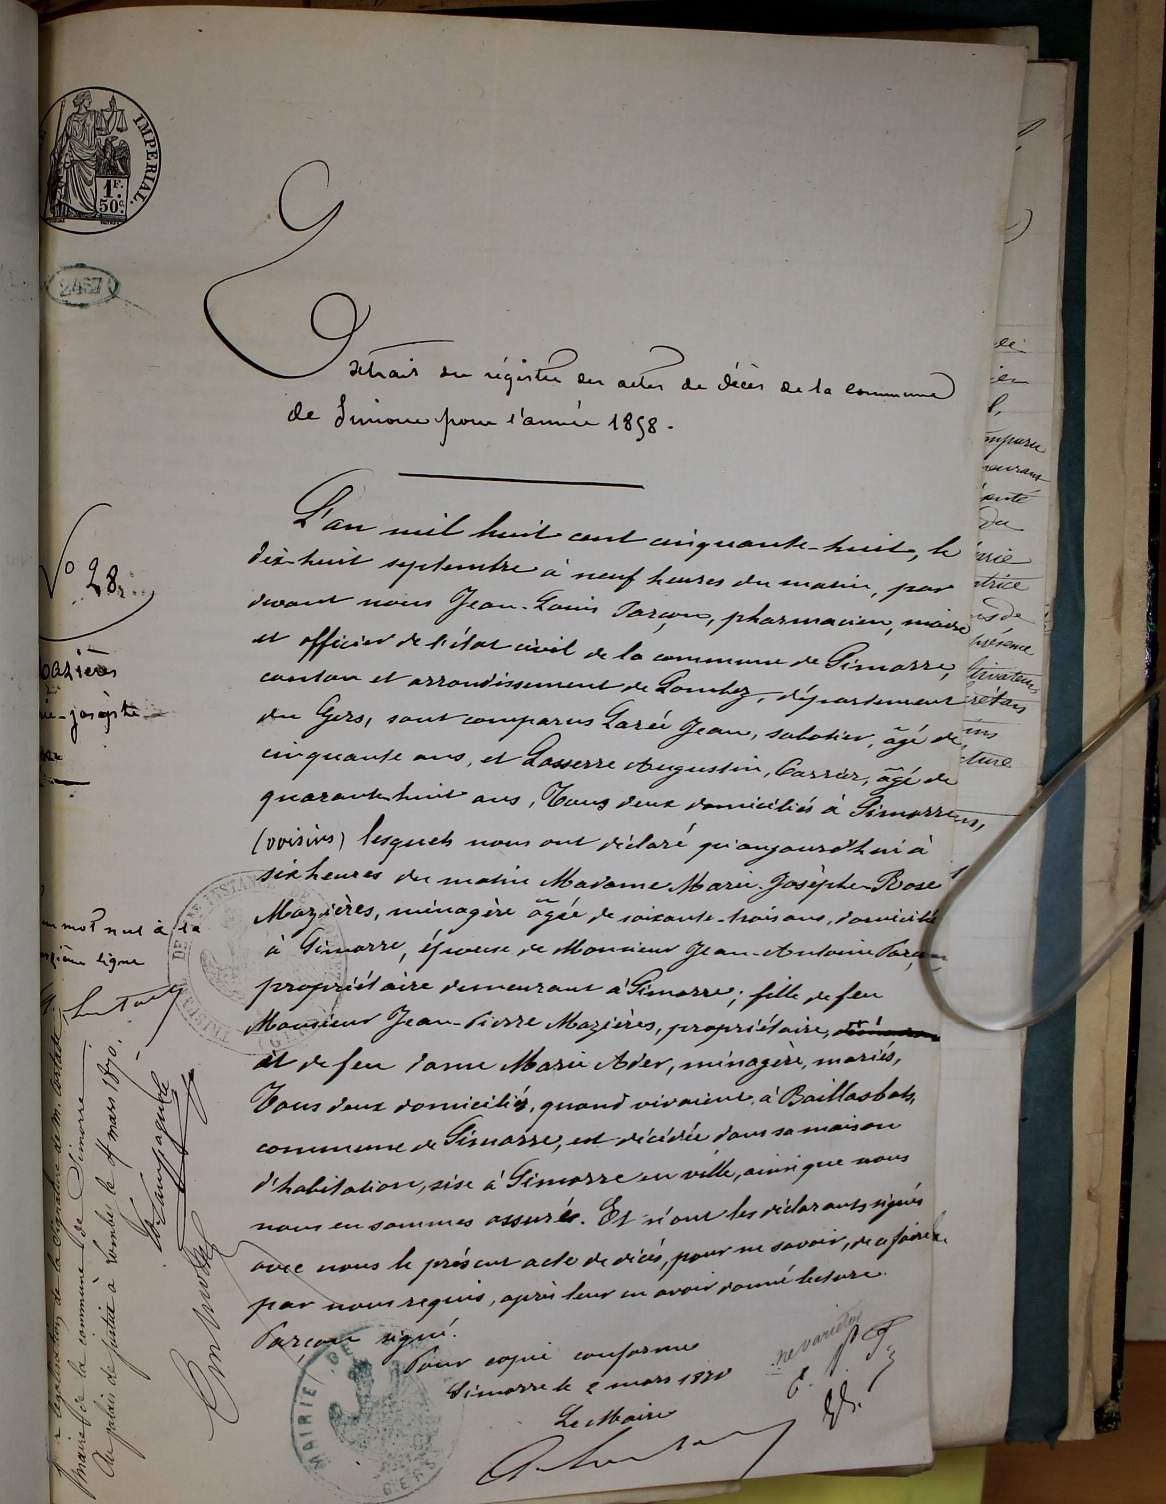 IMPERIAL.
1F.
50c
2457
Extrait du régistre des actes de décès de la commune
de Simorre pour l'année 1858.
No 28
L'an mil huit cent cinquante-huit, le
dix-huit septembre à neuf heures du matin, par
devant nous Jean-Louis Parçon, pharmacien, maire
et officier de l'état civil de la commune de Simorre,
canton et arrondissement de Lombez, département
du Gers, sont comparus Jean, sabotier, âgé de
cinquante ans, et Lasserre Augustin, Carrier, âgé de
quarante-huit ans, Tous deux domiciliés à Simorre
(voisins) lesquels nous ont déclaré qu'aujourd'hui à
six heures du matin Madame Marie-Josèphe-Rose
Mazières, ménagère âgée de soixante-trois ans, domiciliée
à Simorre, épouse de Monsieur Jean-Antoine Parçon
propriétaire demeurant à Simorre; fille de feu
Monsieur Jean-Pierre Mazières, propriétaire,
et de feu dame Marie Ader, ménagère, mariés,
Tous deux domiciliés, quand vivaient, à Baillasbats,
commune de Simorre, est décédée dans sa maison
d'habitation, sise à Simorre en ville, ainsi que nous
nous en sommes assurés. Et n'ont les déclarants signés
avec nous le présent acte de décès, pour ne savoir, de ce faire
par nous requis, après leur en avoir donné lecture.
Parçon signé.
Pour copie conforme
Simorre le 2 mars 1870
Le Maire
ne varietur
mazières
marie-josèphe
mot nul à la
ligne
légalisation de la signature de M.
maire de la commune de Simorre
Au palais de justice à Lombez le 4 mars 1870.
MAIRIE DE
GERS